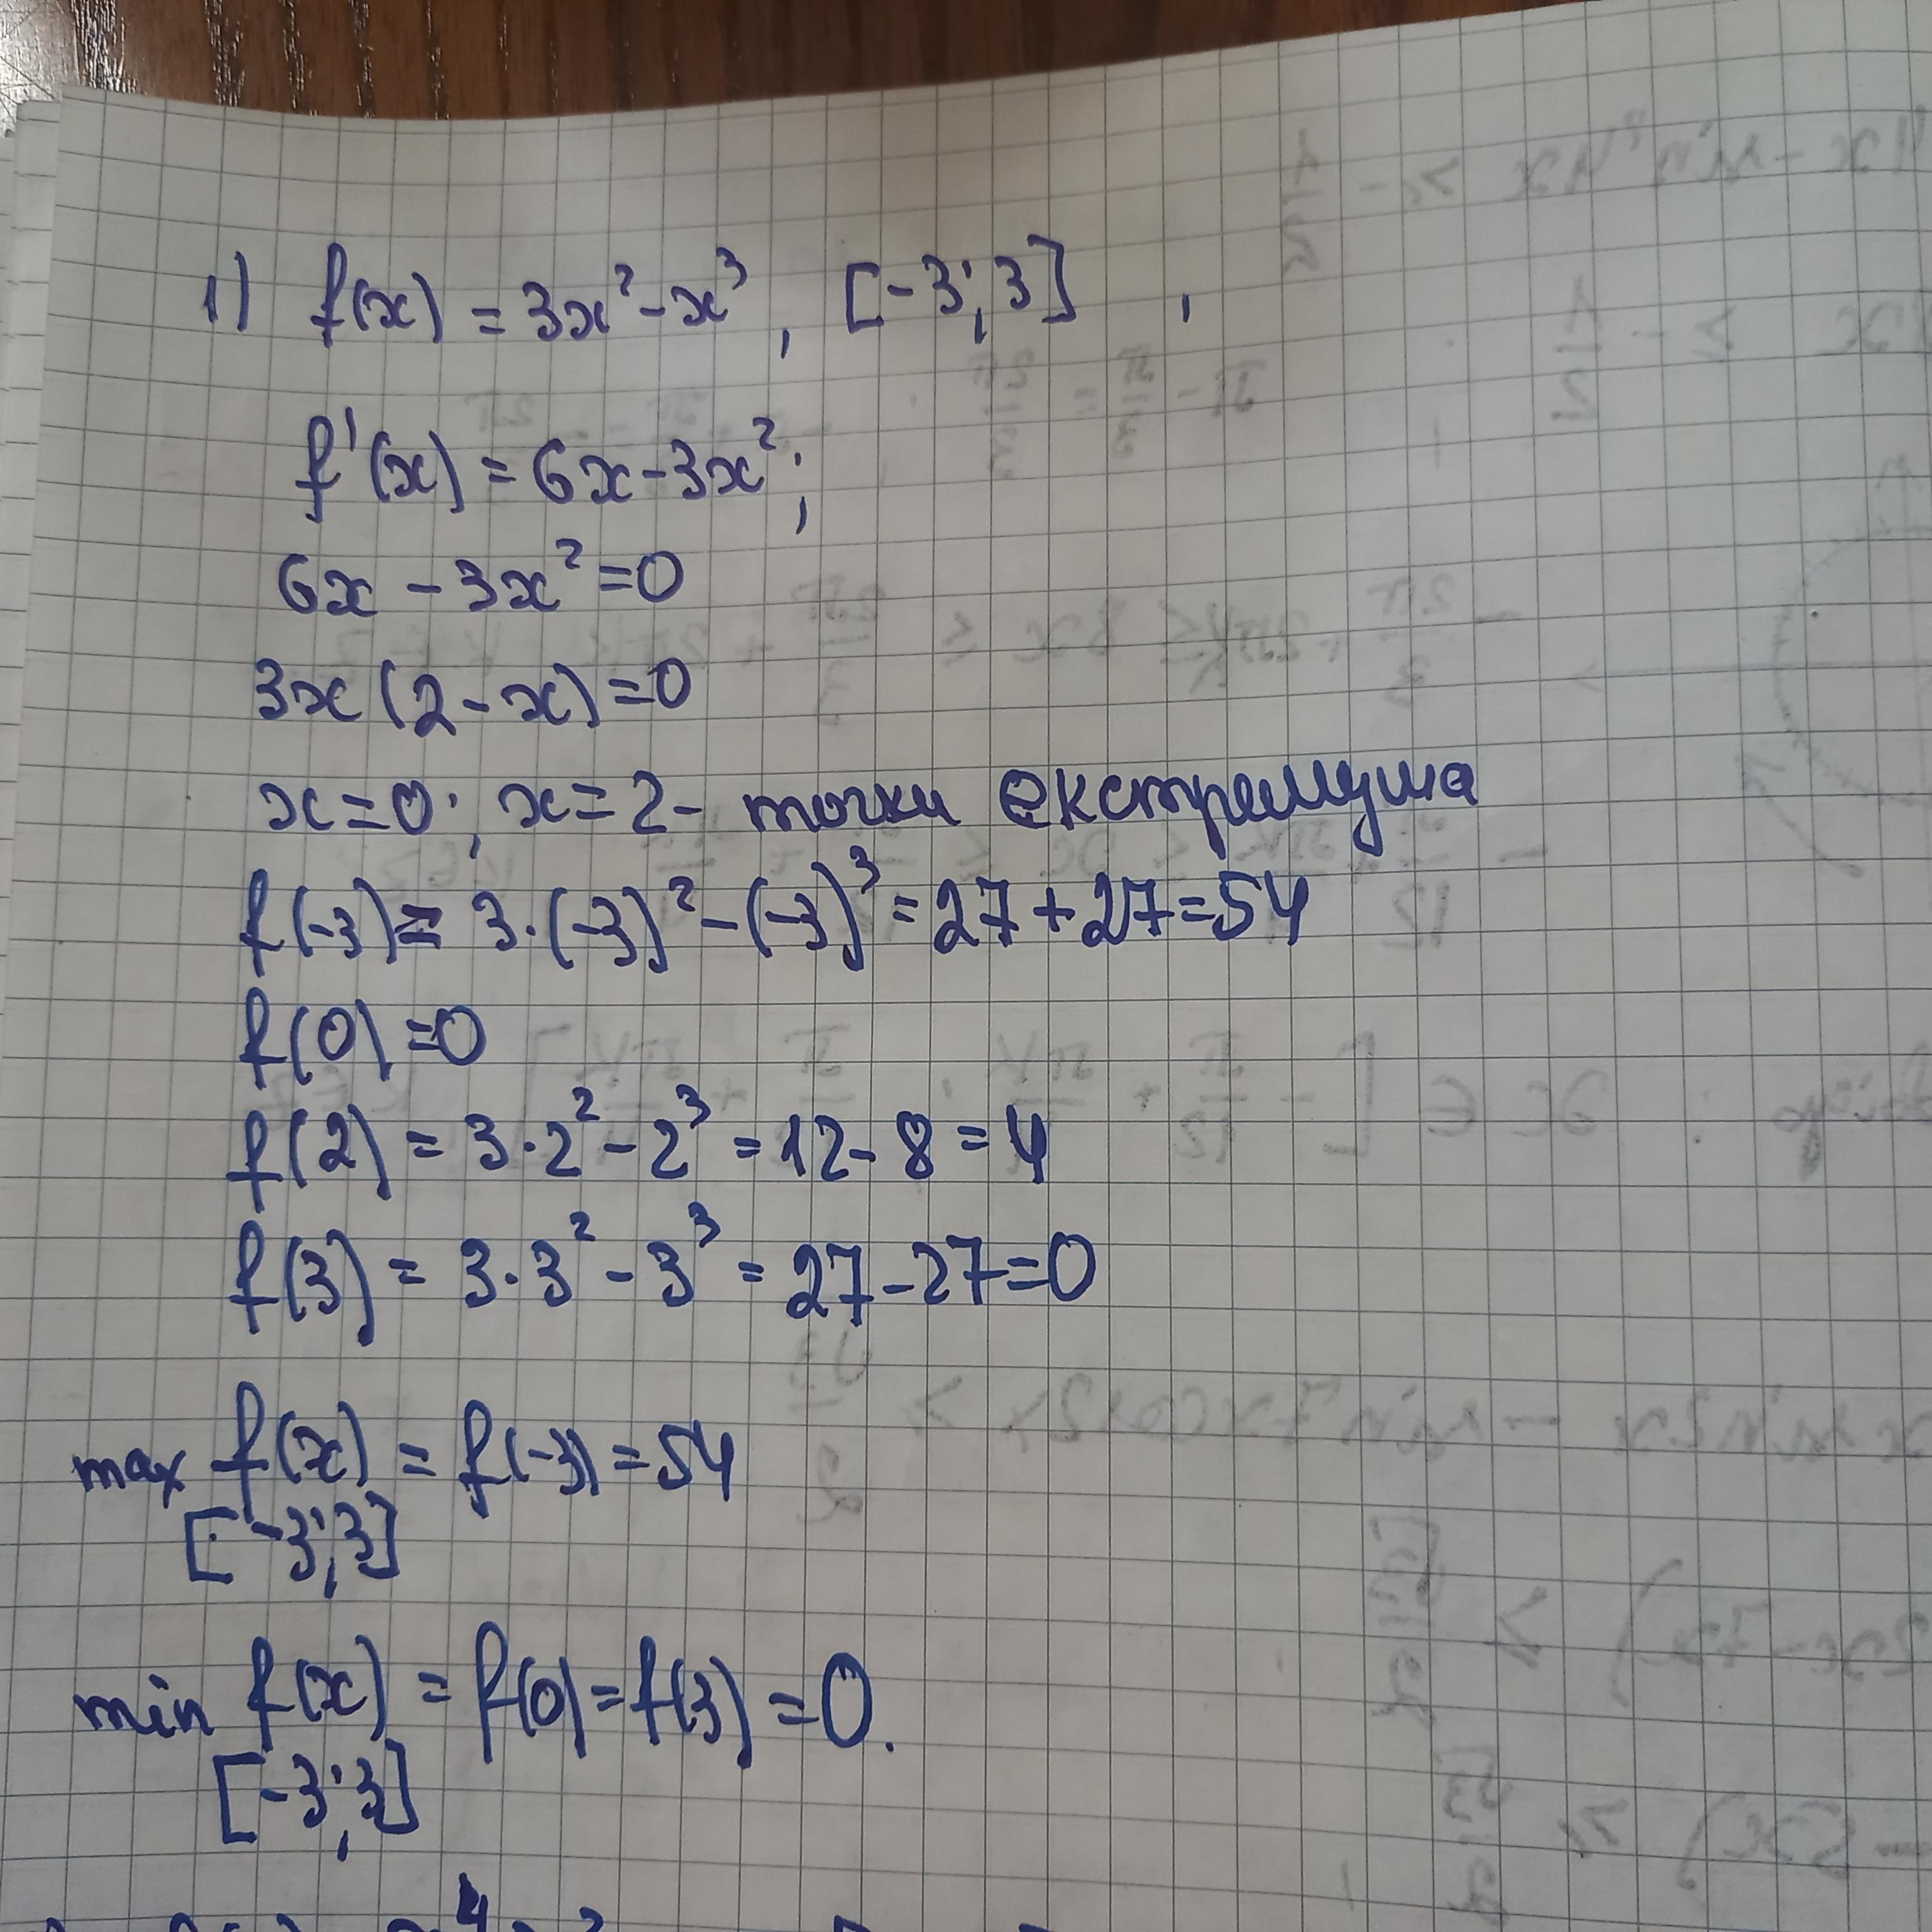 1) f(x) = 3x² - x³, [-3; 3],
f'(x) = 6x - 3x²;
6x - 3x² = 0
3x(2 - x) = 0
x = 0; x = 2 - точки екстремума
f(-3) = 3·(-3)² - (-3)³ = 27 + 27 = 54
f(0) = 0
f(2) = 3·2² - 2³ = 12 - 8 = 4
f(3) = 3·3² - 3³ = 27 - 27 = 0
max f(x) = f(-3) = 54
[-3; 3]
min f(x) = f(0) = f(3) = 0.
[-3; 3]